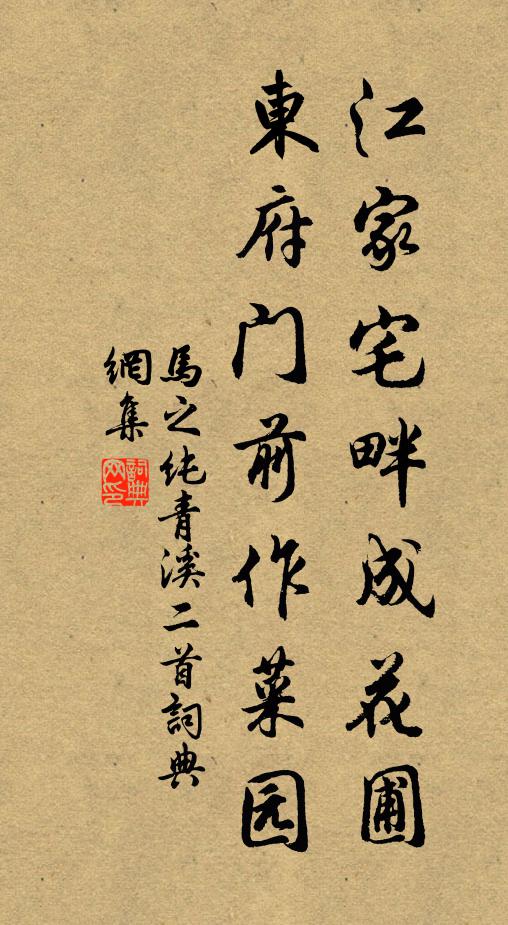 江家宅畔成花圃
東府门前作菜园
馬之纯青溪二首詞典
網集
詞典
网印